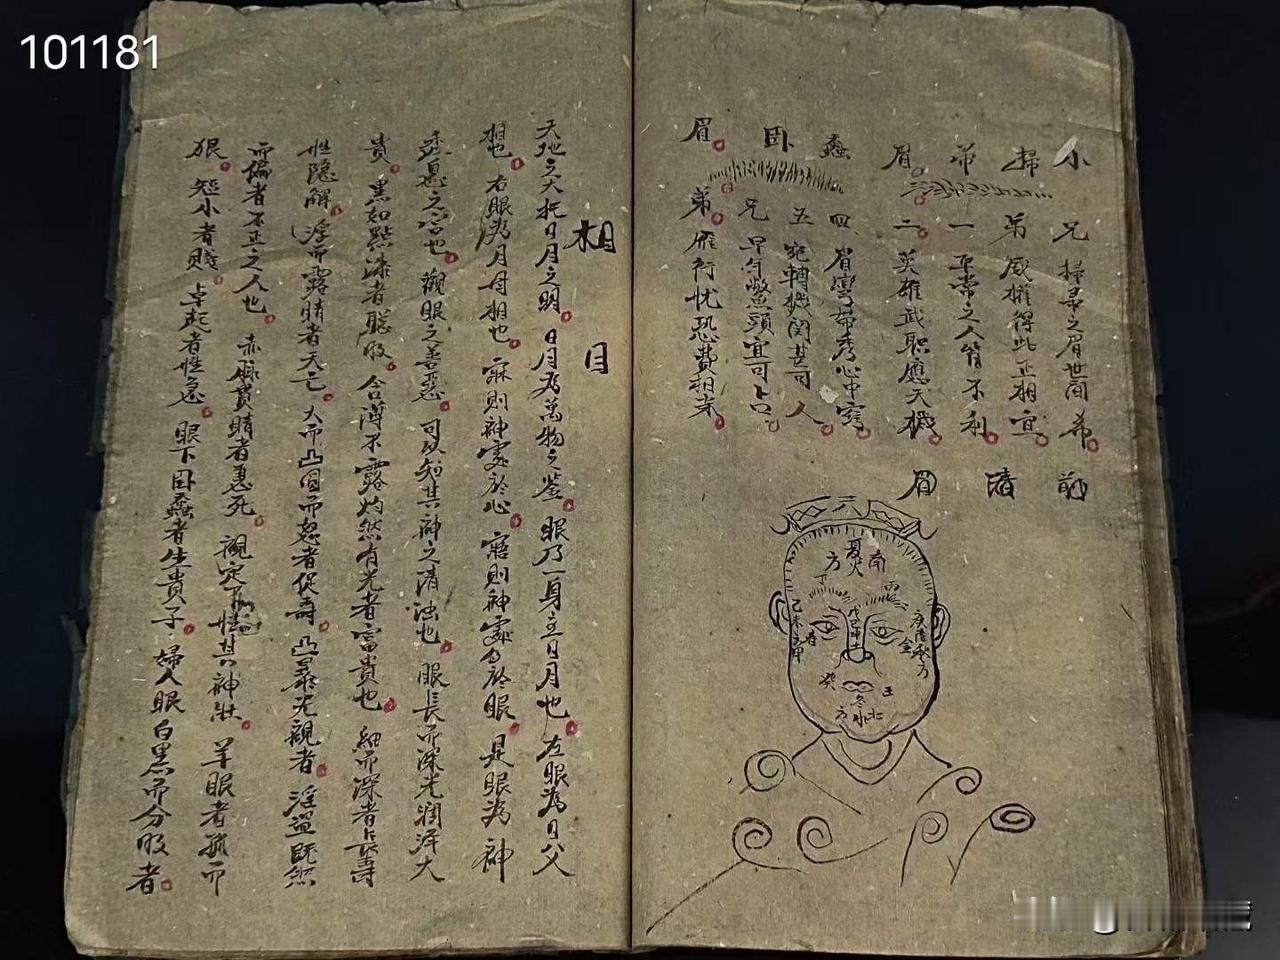 101181
小掃帚眉
兄掃帚之眉世間希
弟威權得此正相宜
一平常之人皆不利
二英雄武职應天機
蠶卧眉
四眉彎帶秀心中窍
五宛轉机関甚可人
兄早年鰲頭宜可占
弟雁行忧恐費相末
前清眉
南
夏火
方
戊己中土
乙木方甲
春
庚
秋方
金
癸
壬
冬水
北
方
相目
天地之大托日月之明日月為萬物之鉴眼乃一身立日月也左眼為日父
相也右眼為月母相也寐則神處於心寤則神處於眼是眼為神
遊息之宫也觀眼之善惡可以知其神之清浊也眼長而深光潤澤大
貴黑如點漆者聡敗含薄不露灼然有光者富貴也細而深者長壽
性隐解浮而露睛者夭亡大而凸圓而怒者促壽凸暴光視者淫盗既然
而偏者不正之人也赤脉貫睛者恶死視定不怯其神壮羊眼者孤而
狠短小者賎卓起者性急眼下卧蠶者生貴子婦人眼白黑而分敗者